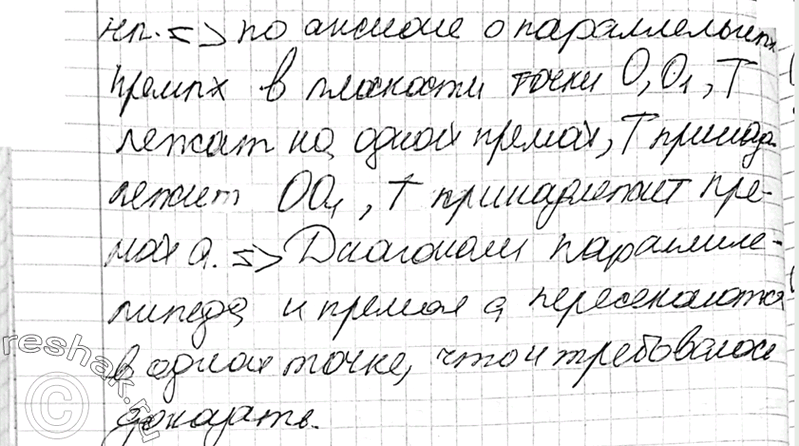 => по аксиоме о параллельных
прямых в плоскости точки O, O₁, T
лежат на одной прямой, T принад-
лежит OO₁, T принадлежит пря-
мой a. => Диагонали параллеле-
пипеда и прямая a пересекаются
в одной точке, что и требовалось
доказать.
reshak.ru
©